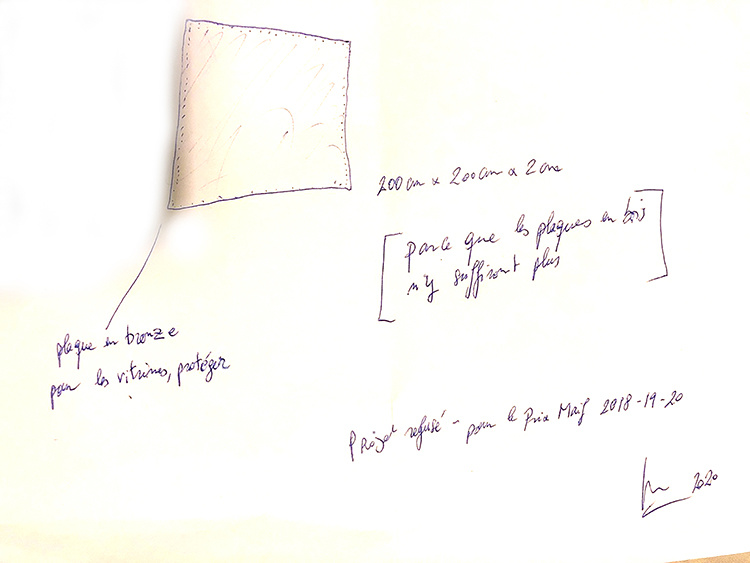 200cm x 200cm x 2cm
[parce que les plaques en bois
n'y suffiront plus]
plaque en bronze
pour les vitrines, protéger
Projet refusé - pour le Prix Maif 2018-19-20
2020